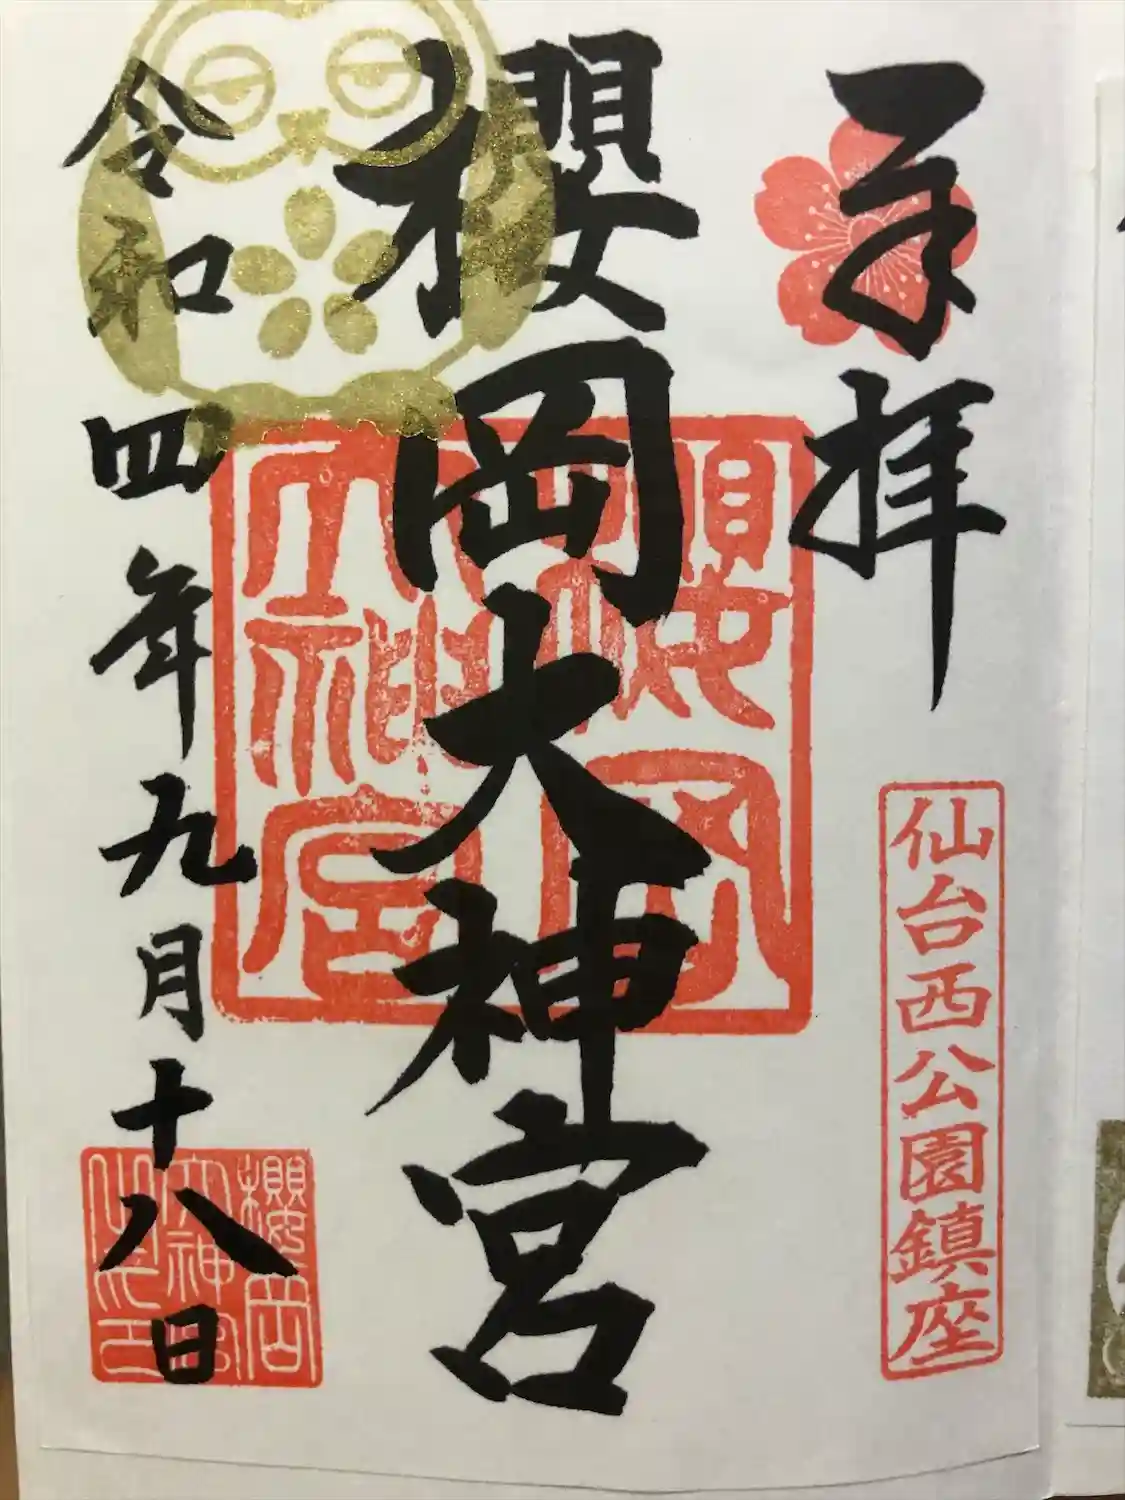 奉拝
仙台西公園鎮座
櫻岡大神宮
櫻岡
大神宮
令和四年九月十八日
櫻岡
大神宮
之印